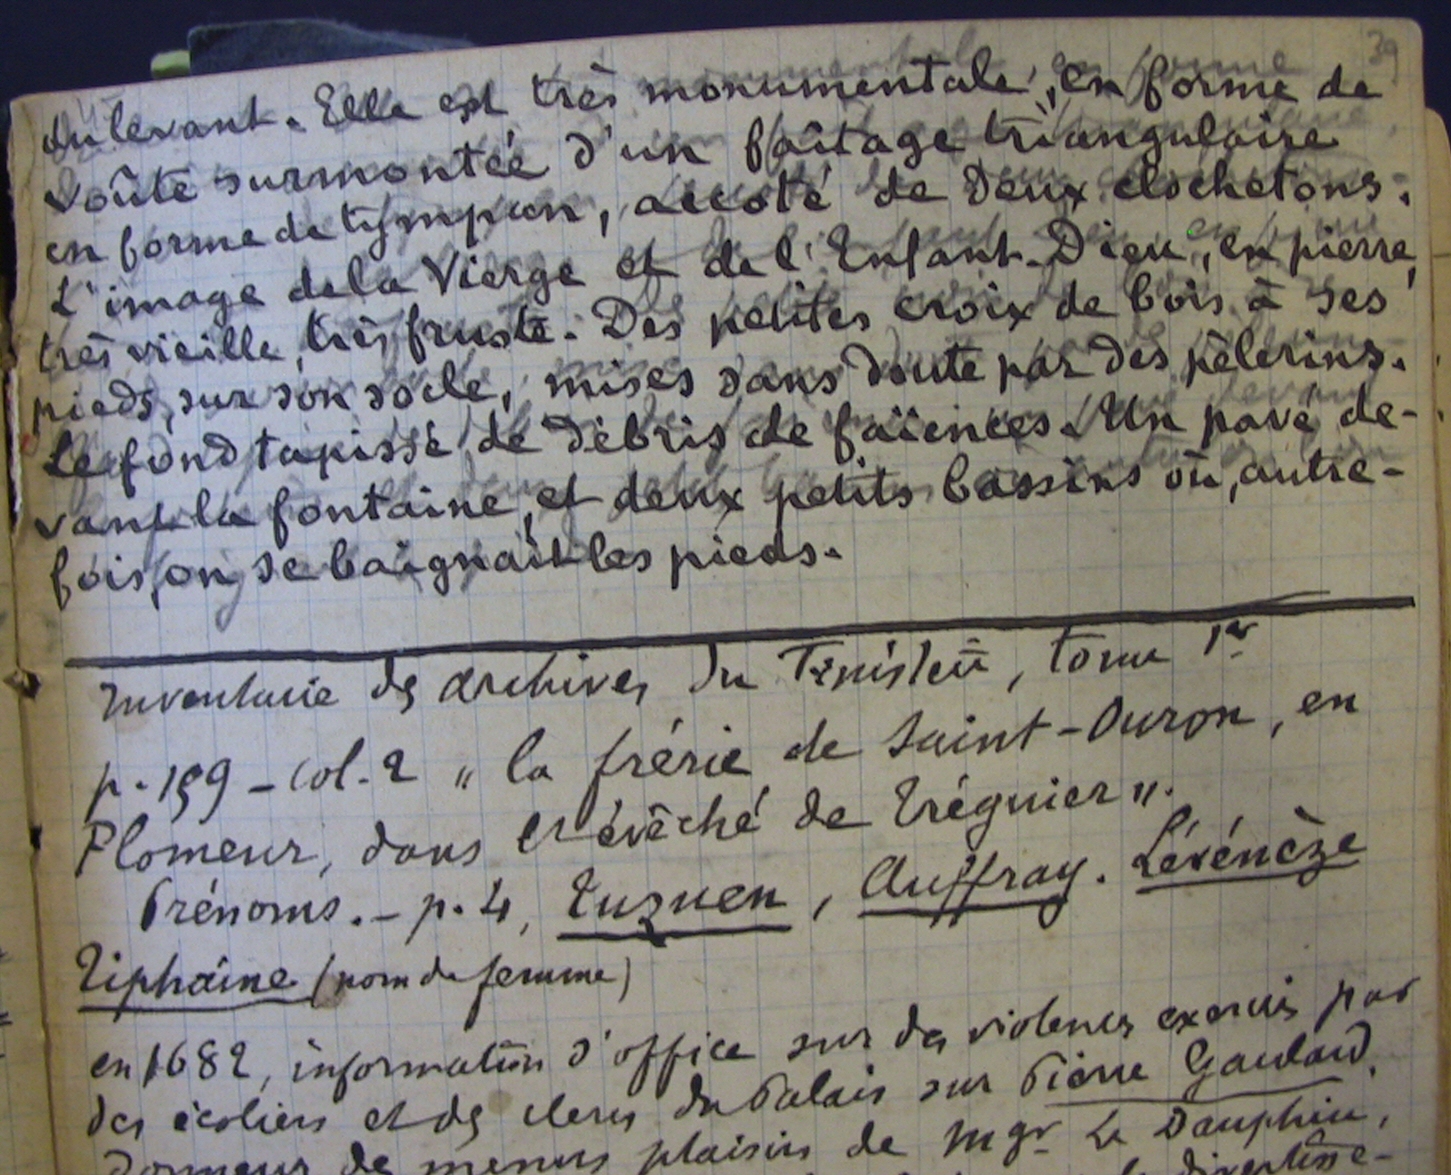 39
du levant. Elle est très monumentale, en forme de
voûte surmontée d'un faîtage triangulaire
en forme de tympan, accoté de deux clochetons.
L'image de la Vierge et de l'Enfant-Dieu, en pierre,
très vieille, très fruste. Des petites croix de bois à ses
pieds, sur son socle, mises sans doute par des pèlerins.
Le fond tapissé de débris de faïences. Un pavé de-
vant la fontaine, et deux petits bassins où, autre-
fois, on se baignait les pieds.
Inventaire des archives du Finistère, tome 1er
p. 159 - col. 2 " la frérie de Saint-Duron, en
Plomeur, dans l'évêché de Tréguier ".
Prénoms. - p. 4, Tuzuen, Auffray. Lévénèze
Tiphaine (nom de femme)
en 1682, information d'office sur des violences exercées par
des écoliers et des clercs du Palais sur Pierre Gaulard,
de menus plaisirs de Mgr Le Dauphin,